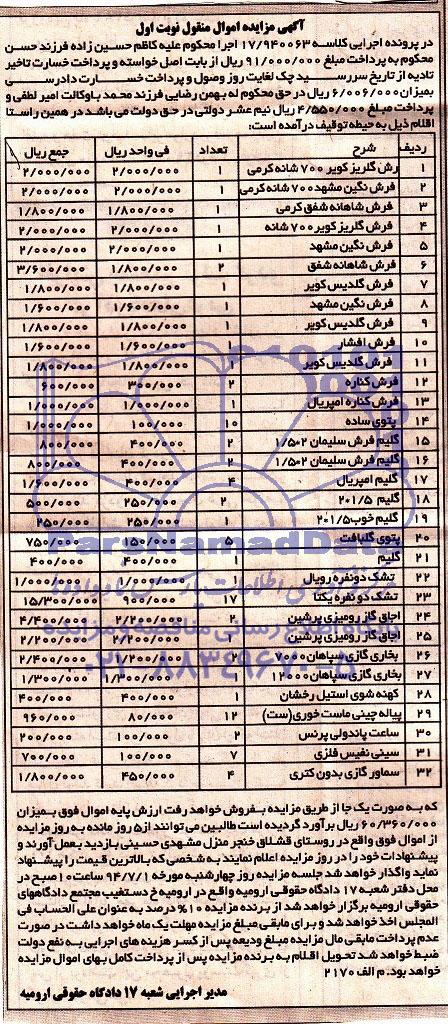 آگهی مزایده اموال منقول نوبت اول
در پرونده اجرایی کلاسه ۱۷/۹۴۰۰۶۳ اجرا محکوم علیه کاظم حسین زاده فرزند حسن
محکوم به پرداخت مبلغ ۹۱/۰۰۰/۰۰۰ ریال از بابت اصل خواسته و پرداخت خسارت تاخیر
تادیه از تاریخ سررسید چک لغایت روز وصول و پرداخت خسارت دادرسی
بمیزان ۶/۰۰۶/۰۰۰ ریال در حق محکوم له بهمن رضایی فرزند محمد باوکالت امیر لطفی و
پرداخت مبلغ ۴/۵۵۰/۰۰۰ ریال نیم عشر دولتی در حق دولت می باشد در همین راستا
اقلام ذیل به حیطه توقیف درآمده است:
ردیف شرح تعداد فی واحد ریال جمع ریال
۱ رش گلریز کویر ۷۰۰ شانه کرمی ۱ ۲/۰۰۰/۰۰۰ ۲/۰۰۰/۰۰۰
۲ فرش نگین مشهد ۷۰۰ شانه کرمی ۱ ۲/۰۰۰/۰۰۰ ۲/۰۰۰/۰۰۰
۳ فرش شاهانه شفق کرمی ۱ ۱/۸۰۰/۰۰۰ ۱/۸۰۰/۰۰۰
۴ فرش گلریز کویر ۷۰۰ شانه ۱ ۲/۰۰۰/۰۰۰ ۲/۰۰۰/۰۰۰
۵ فرش نگین مشهد ۱ ۲/۰۰۰/۰۰۰ ۲/۰۰۰/۰۰۰
۶ فرش شاهانه شفق ۲ ۱/۸۰۰/۰۰۰ ۳/۶۰۰/۰۰۰
۷ فرش گلدیس کویر ۱ ۱/۸۰۰/۰۰۰ ۱/۸۰۰/۰۰۰
۸ فرش نگین مشهد ۱ ۱/۶۰۰/۰۰۰ ۱/۶۰۰/۰۰۰
۹ فرش گلدیس کویر ۱ ۱/۸۰۰/۰۰۰ ۱/۸۰۰/۰۰۰
۱۰ فرش افشار ۱ ۱/۶۰۰/۰۰۰ ۱/۶۰۰/۰۰۰
۱۱ فرش گلدیس کویر ۱ ۱/۸۰۰/۰۰۰ ۱/۸۰۰/۰۰۰
۱۲ فرش کناره ۲ ۳۰۰/۰۰۰ ۶۰۰/۰۰۰
۱۳ فرش کناره امپریال ۱ ۱/۰۰۰/۰۰۰ ۱/۰۰۰/۰۰۰
۱۴ پتوی ساده ۱۰ ۱۰۰/۰۰۰ ۱/۰۰۰/۰۰۰
۱۵ گلیم فرش سلیمان ۱/۵۰۲ ۲ ۴۰۰/۰۰۰ ۸۰۰/۰۰۰
۱۶ گلیم فرش سلیمان ۱/۵۰۲ ۲ ۴۰۰/۰۰۰ ۸۰۰/۰۰۰
۱۷ گلیم امپریال ۴ ۴۰۰/۰۰۰ ۱/۶۰۰/۰۰۰
۱۸ گلیم ۲۰۱/۵ ۲ ۲۵۰/۰۰۰ ۵۰۰/۰۰۰
۱۹ گلیم خوب ۲۰۱/۵ ۱ ۲۵۰/۰۰۰ ۲۵۰/۰۰۰
۲۰ پتوی گلبافت ۵ ۱۵۰/۰۰۰ ۷۵۰/۰۰۰
۲۱ گلیم ۱ ۴۰۰/۰۰۰ ۴۰۰/۰۰۰
۲۲ تشک دونفره رویال ۱ ۱/۰۰۰/۰۰۰ ۱/۰۰۰/۰۰۰
۲۳ تشک دو نفره یکتا ۱۷ ۹۰۰/۰۰۰ ۱۵/۳۰۰/۰۰۰
۲۴ اجاق گاز رومیزی پرشین ۲ ۲/۲۰۰/۰۰۰ ۴/۴۰۰/۰۰۰
۲۵ اجاق گاز رومیزی پرشین ۱ ۲/۲۰۰/۰۰۰ ۲/۲۰۰/۰۰۰
۲۶ بخاری گازی سپاهان ۷۰۰۰ ۲ ۱/۲۰۰/۰۰۰ ۲/۴۰۰/۰۰۰
۲۷ بخاری گازی سپاهان ۱۲۰۰۰ ۱ ۱/۳۰۰/۰۰۰ ۱/۳۰۰/۰۰۰
۲۸ کهنه شوی استیل رخشان ۱ ۴۰۰/۰۰۰ ۴۰۰/۰۰۰
۲۹ پیاله چینی ماست خوری (ست) ۱۲ ۸۰/۰۰۰ ۹۶۰/۰۰۰
۳۰ ساعت پاندولی پرنس ۲ ۱۰۰/۰۰۰ ۲۰۰/۰۰۰
۳۱ سینی نفیس فلزی ۷ ۱۰۰/۰۰۰ ۷۰۰/۰۰۰
۳۲ سماور گازی بدون کتری ۴ ۴۵۰/۰۰۰ ۱/۸۰۰/۰۰۰
ParsNamadData
۰۲۱-۸۸۳۴۹۶۷۰-۵
که به صورت یک جا از طریق مزایده بفروش خواهد رفت ارزش پایه اموال فوق بمیزان
۶۰/۳۶۰/۰۰۰ ریال برآورد گردیده است طالبین می توانند از ۵ روز مانده به روز مزایده
از اموال فوق واقع در روستای قشلاق خنجر منزل مشهدی حسینی بازدید بعمل آورند و
پیشنهادات خود را در روز مزایده اعلام نمایند به شخصی که بالاترین قیمت را پیشنهاد
نماید واگذار خواهد شد جلسه مزایده روز چهارشنبه مورخه ۹۴/۷/۱ ساعت ۱۰ صبح در
محل دفتر شعبه ۱۷ دادگاه حقوقی ارومیه واقع در ارومیه خ دستغیب مجتمع دادگاههای
حقوقی ارومیه برگزار خواهد شد از برنده مزایده ۱۰% درصد به عنوان علی الحساب فی
المجلس اخذ خواهد شد و برای مابقی مبلغ مزایده مهلت یک ماه خواهد داشت در صورت
عدم پرداخت مابقی مال مزایده مبلغ ودیعه پس از کسر هزینه های اجرایی به نفع دولت
ضبط خواهد شد تحویل اقلام به برنده مزایده پس از پرداخت کامل بهای اموال مزایده
خواهد بود. م الف ۲۱۷۰
مدیر اجرایی شعبه ۱۷ دادگاه حقوقی ارومیه